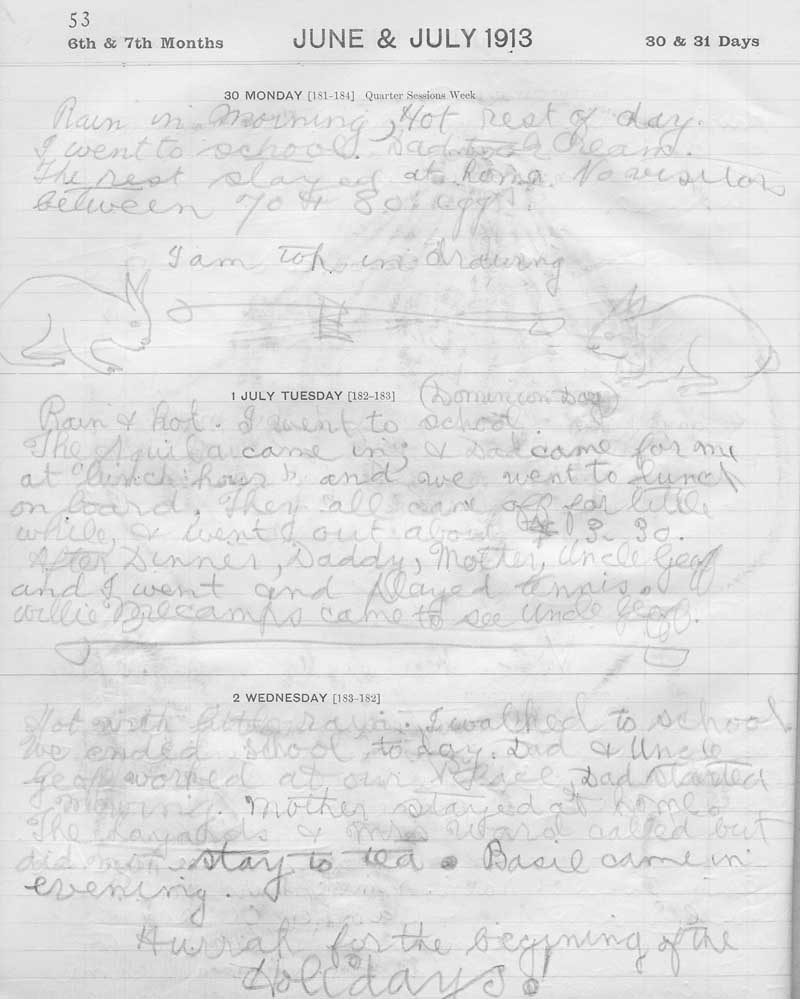 53
6th & 7th Months JUNE & JULY 1913 30 & 31 Days
30 MONDAY [181-184] Quarter Sessions Week
Rain in Morning, Hot rest of day.
I went to school. Dad took Cream.
The rest stayed at home. No visitors
between 70 & 80 eggs.
I am top in drawing
1 JULY TUESDAY [182-183] (Dominion Day)
Rain & hot. I went to school.
The Aquila came in, & Dad came for me
at "lunch hour" and we went to lunch
on board. They all came off for little
while, & went out about 3.30.
After Dinner, Daddy, Mother, Uncle Geoff
and I went and played tennis.
Willie came to see Uncle Geoff.
2 WEDNESDAY [183-182]
Hot with little rain. I walked to school
We ended school today. Dad & Uncle
Geoff worked at our Place, Dad started
Morning. Mother stayed at home.
The & Mrs Ward called but
did not stay to tea. Basil came in
evening.
Hurrah for the begining of the
Holidays.